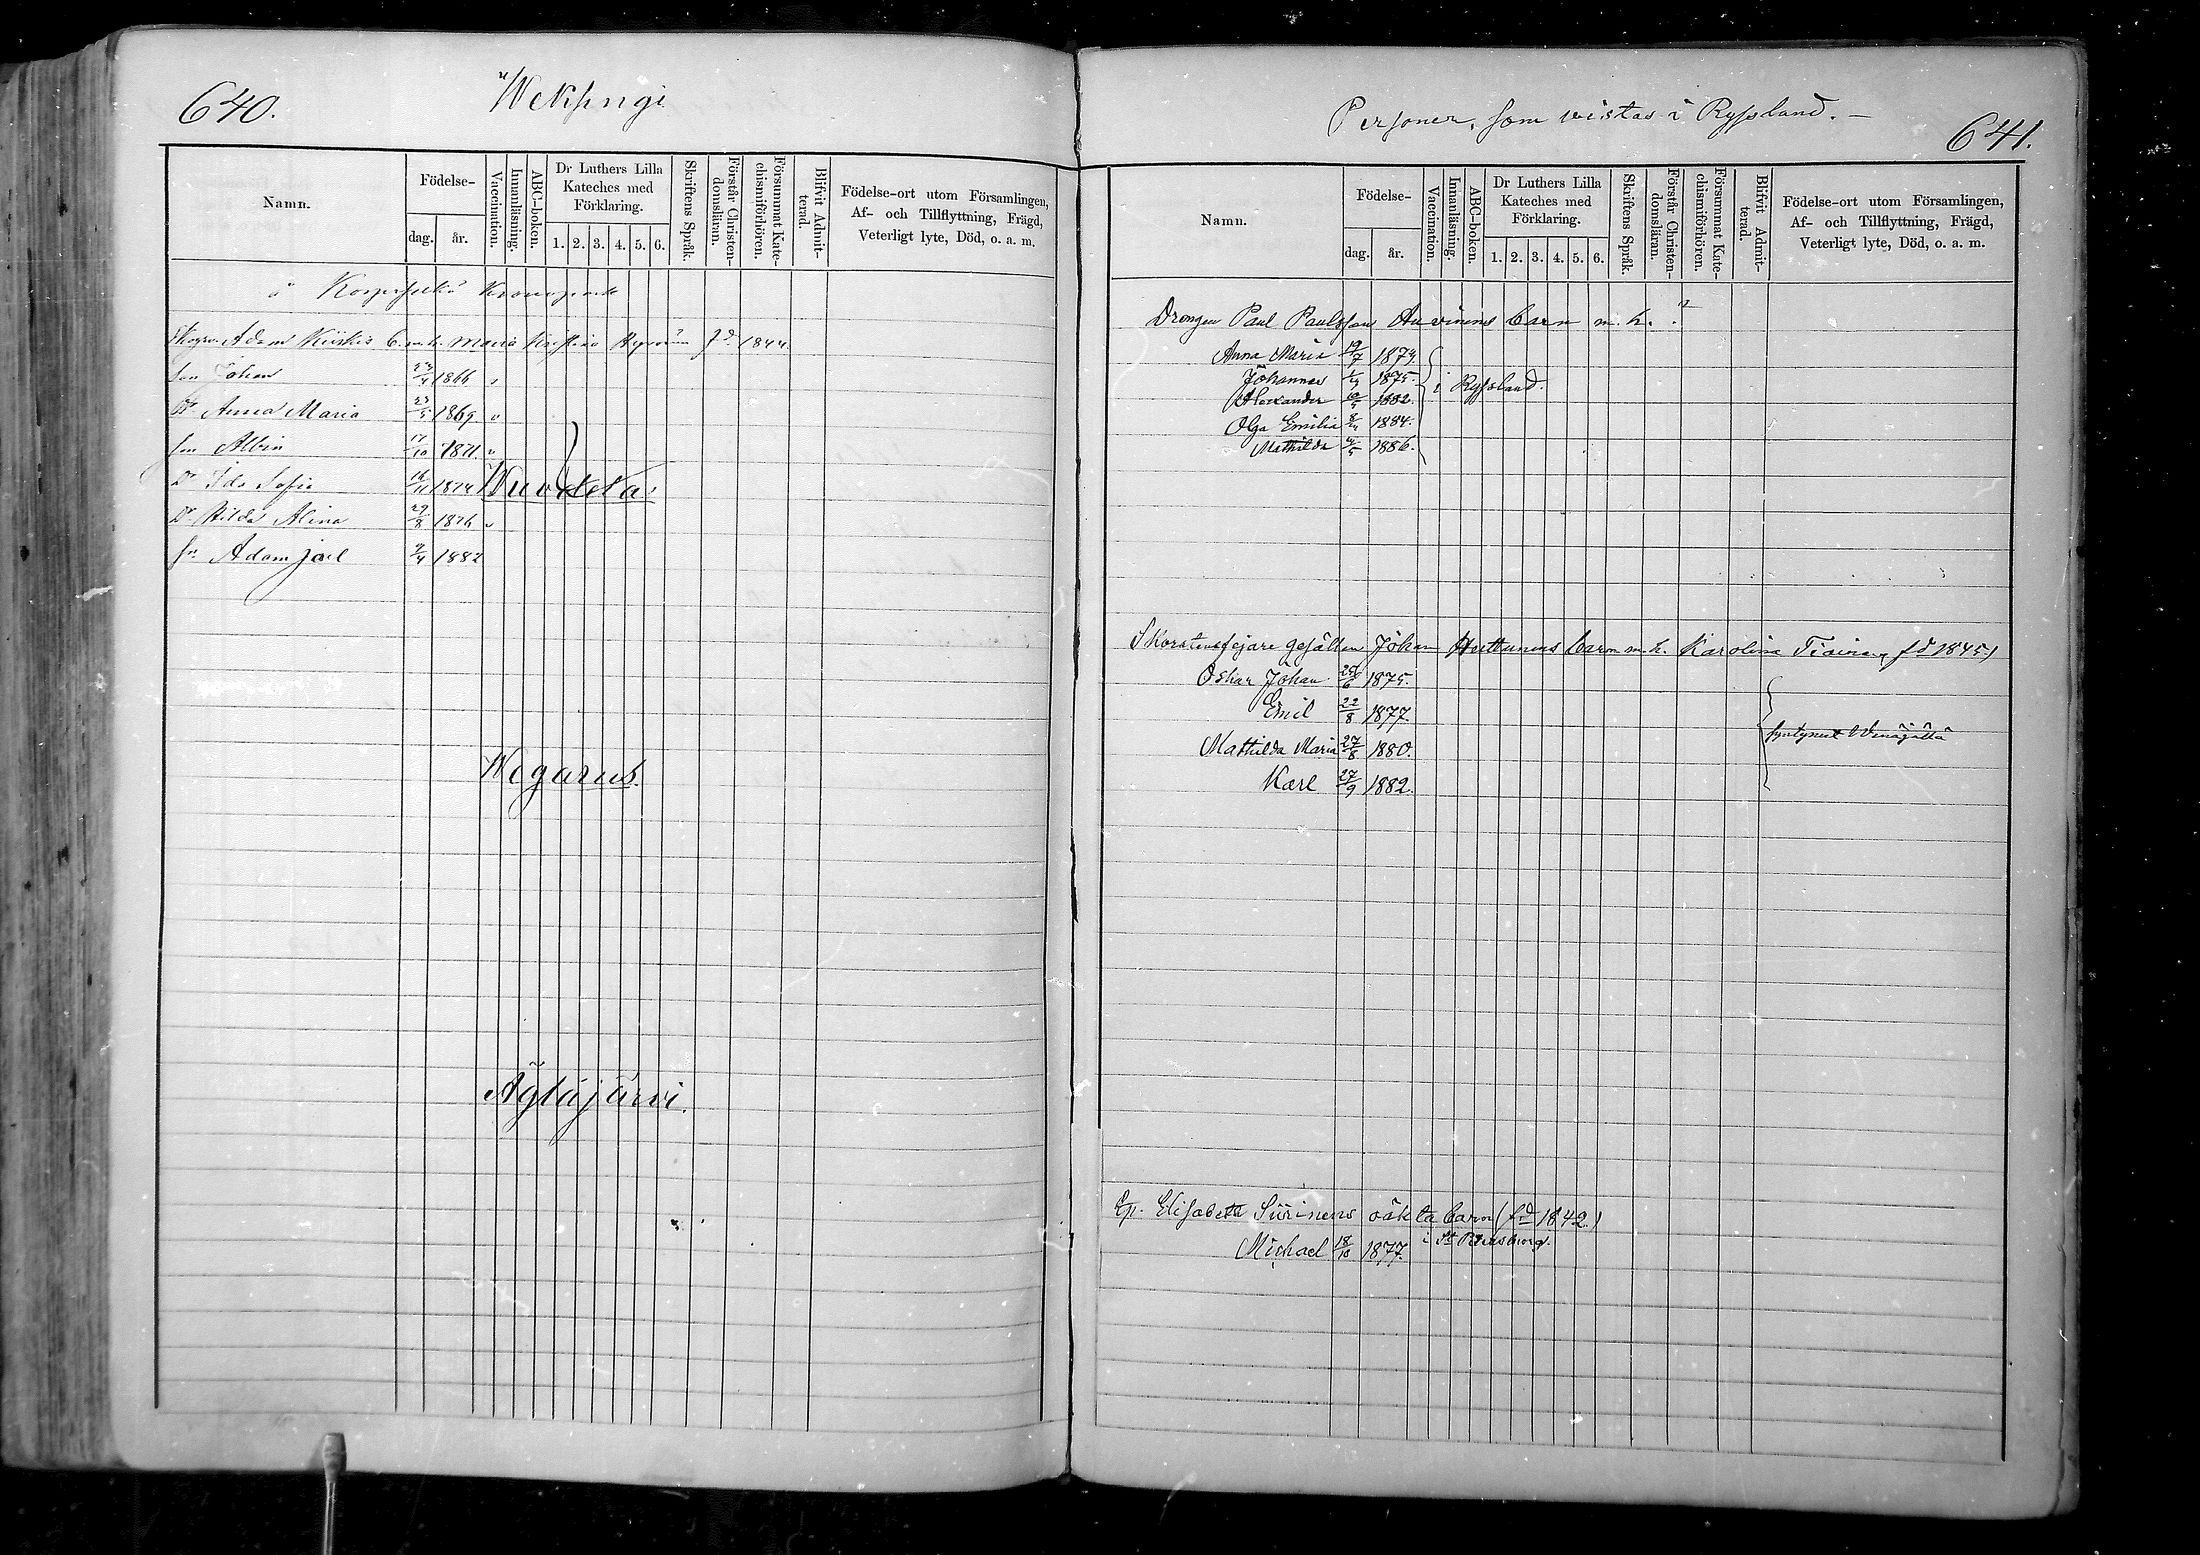 640.
Wekpingi
Namn.
Födelse-
dag.
år.
Vaccination.
Innanläsning.
ABC-boken.
Dr Luthers Lilla
Kateches med
Förklaring.
1. 2. 3. 4. 5. 6.
Skriftens Språk.
Förstår Christen-
domsläran.
Försummat Kate-
chismiförhören.
Blifvit Admit-
terad.
Födelse-ort utom Församlingen,
Af- och Tillflyttning, Frägd,
Veterligt lyte, Död, o. a. m.
å Korpiselkä Kronopark
Adam Kiiskis b. m. h. Maria Kristina fd. 1844.
son Johan 23/4 1866
Dr Anna Maria 23/5 1869
son Albin 17/10 1871.
Dr Ida Sofia 16/11 1874
Wuotteka.
Dr Hilda Alina 29/8 1876
sn Adam Joel 2/4 1882
Wegarus.
Ägläjärvi.
Personer, som vistas i Ryssland. —
641.
Namn.
Födelse-
dag.
år.
Vaccination.
Innanläsning.
ABC-boken.
Dr Luthers Lilla
Kateches med
Förklaring.
1. 2. 3. 4. 5. 6.
Skriftens Språk.
Förstår Christen-
domsläran.
Försummat Kate-
chismiförhören.
Blifvit Admit-
terad.
Födelse-ort utom Församlingen,
Af- och Tillflyttning, Frägd,
Veterligt lyte, Död, o. a. m.
Drengen Paul Paulsson Auvinens barn m. h. ?
Anna Maria 19/7 1874.
Johannes 1/9 1875. i Ryssland.
Alexander 10/5 1882.
Olga Emilia 8/4 1884.
Mathilda 4/5 1886.
Skorstensfejare gesällen Johan Huttunens barn m. h. Karolina Tiainen fd 1845)
Oskar Johan 24/6 1875.
Emil 22/8 1877.
syntynut Wenäjällä
Mathilda Maria 27/8 1880.
Karl 27/9 1882.
Ep. Elisabeth Siirinens oäkta barn (fd 1842.)
Michael 18/10 1877. i St Petersborg.